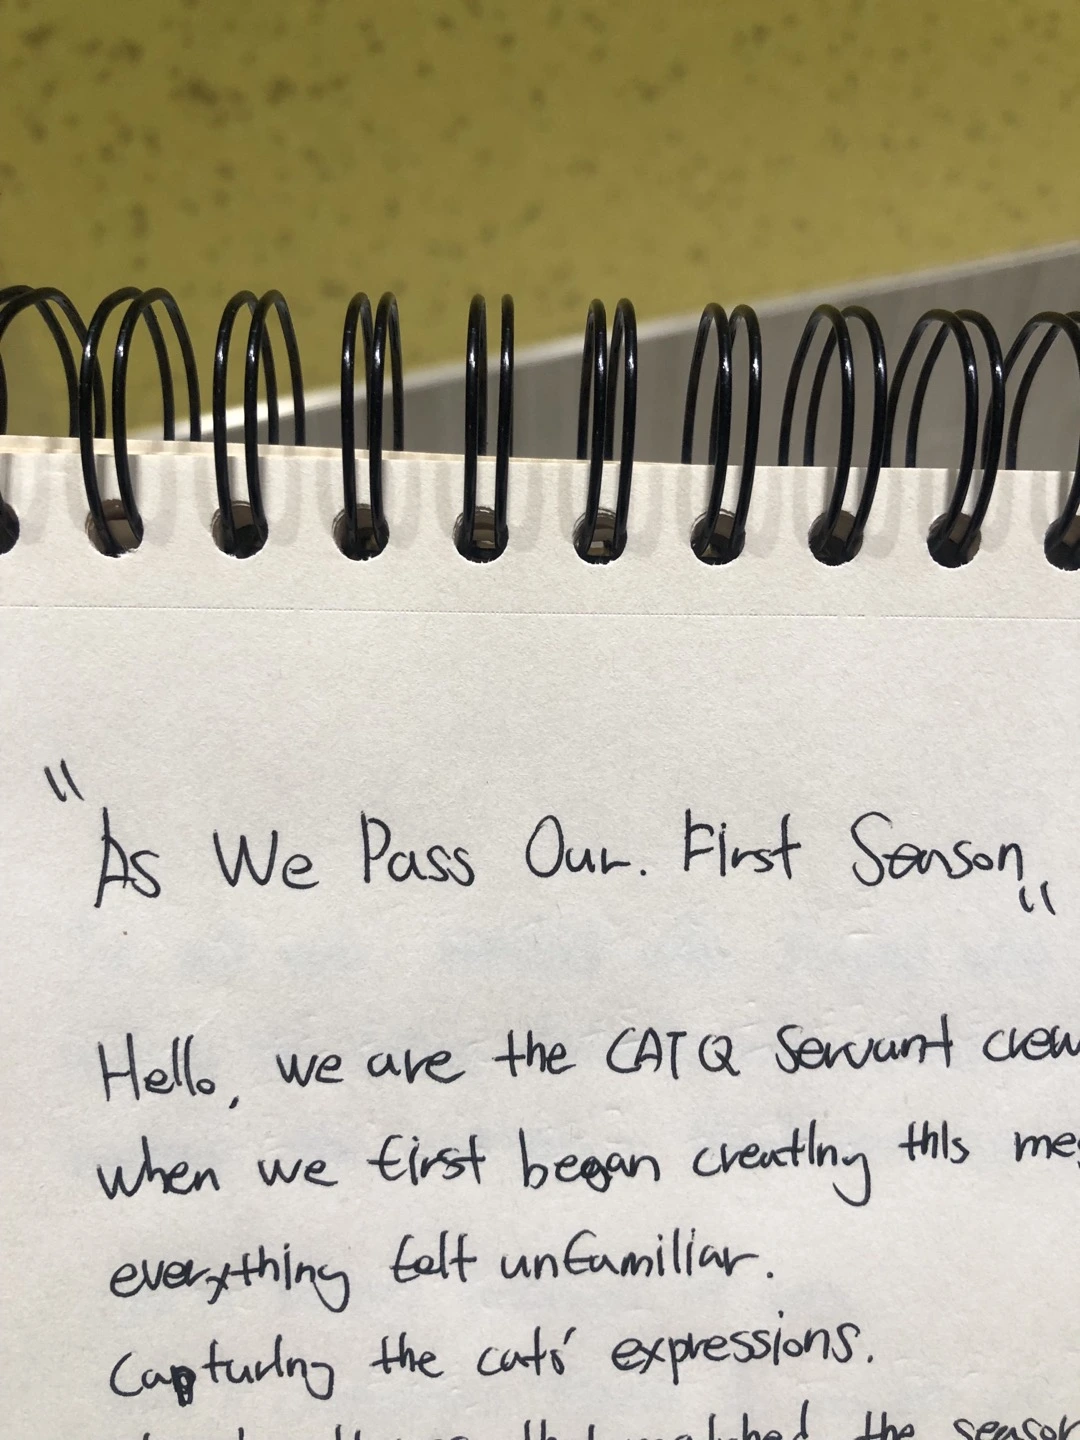 "As We Pass Our. First Season"
Hello, we are the CATQ Servant crew
when we first began creating this
everything felt unfamiliar.
Capturing the cats' expressions.
that matched the season